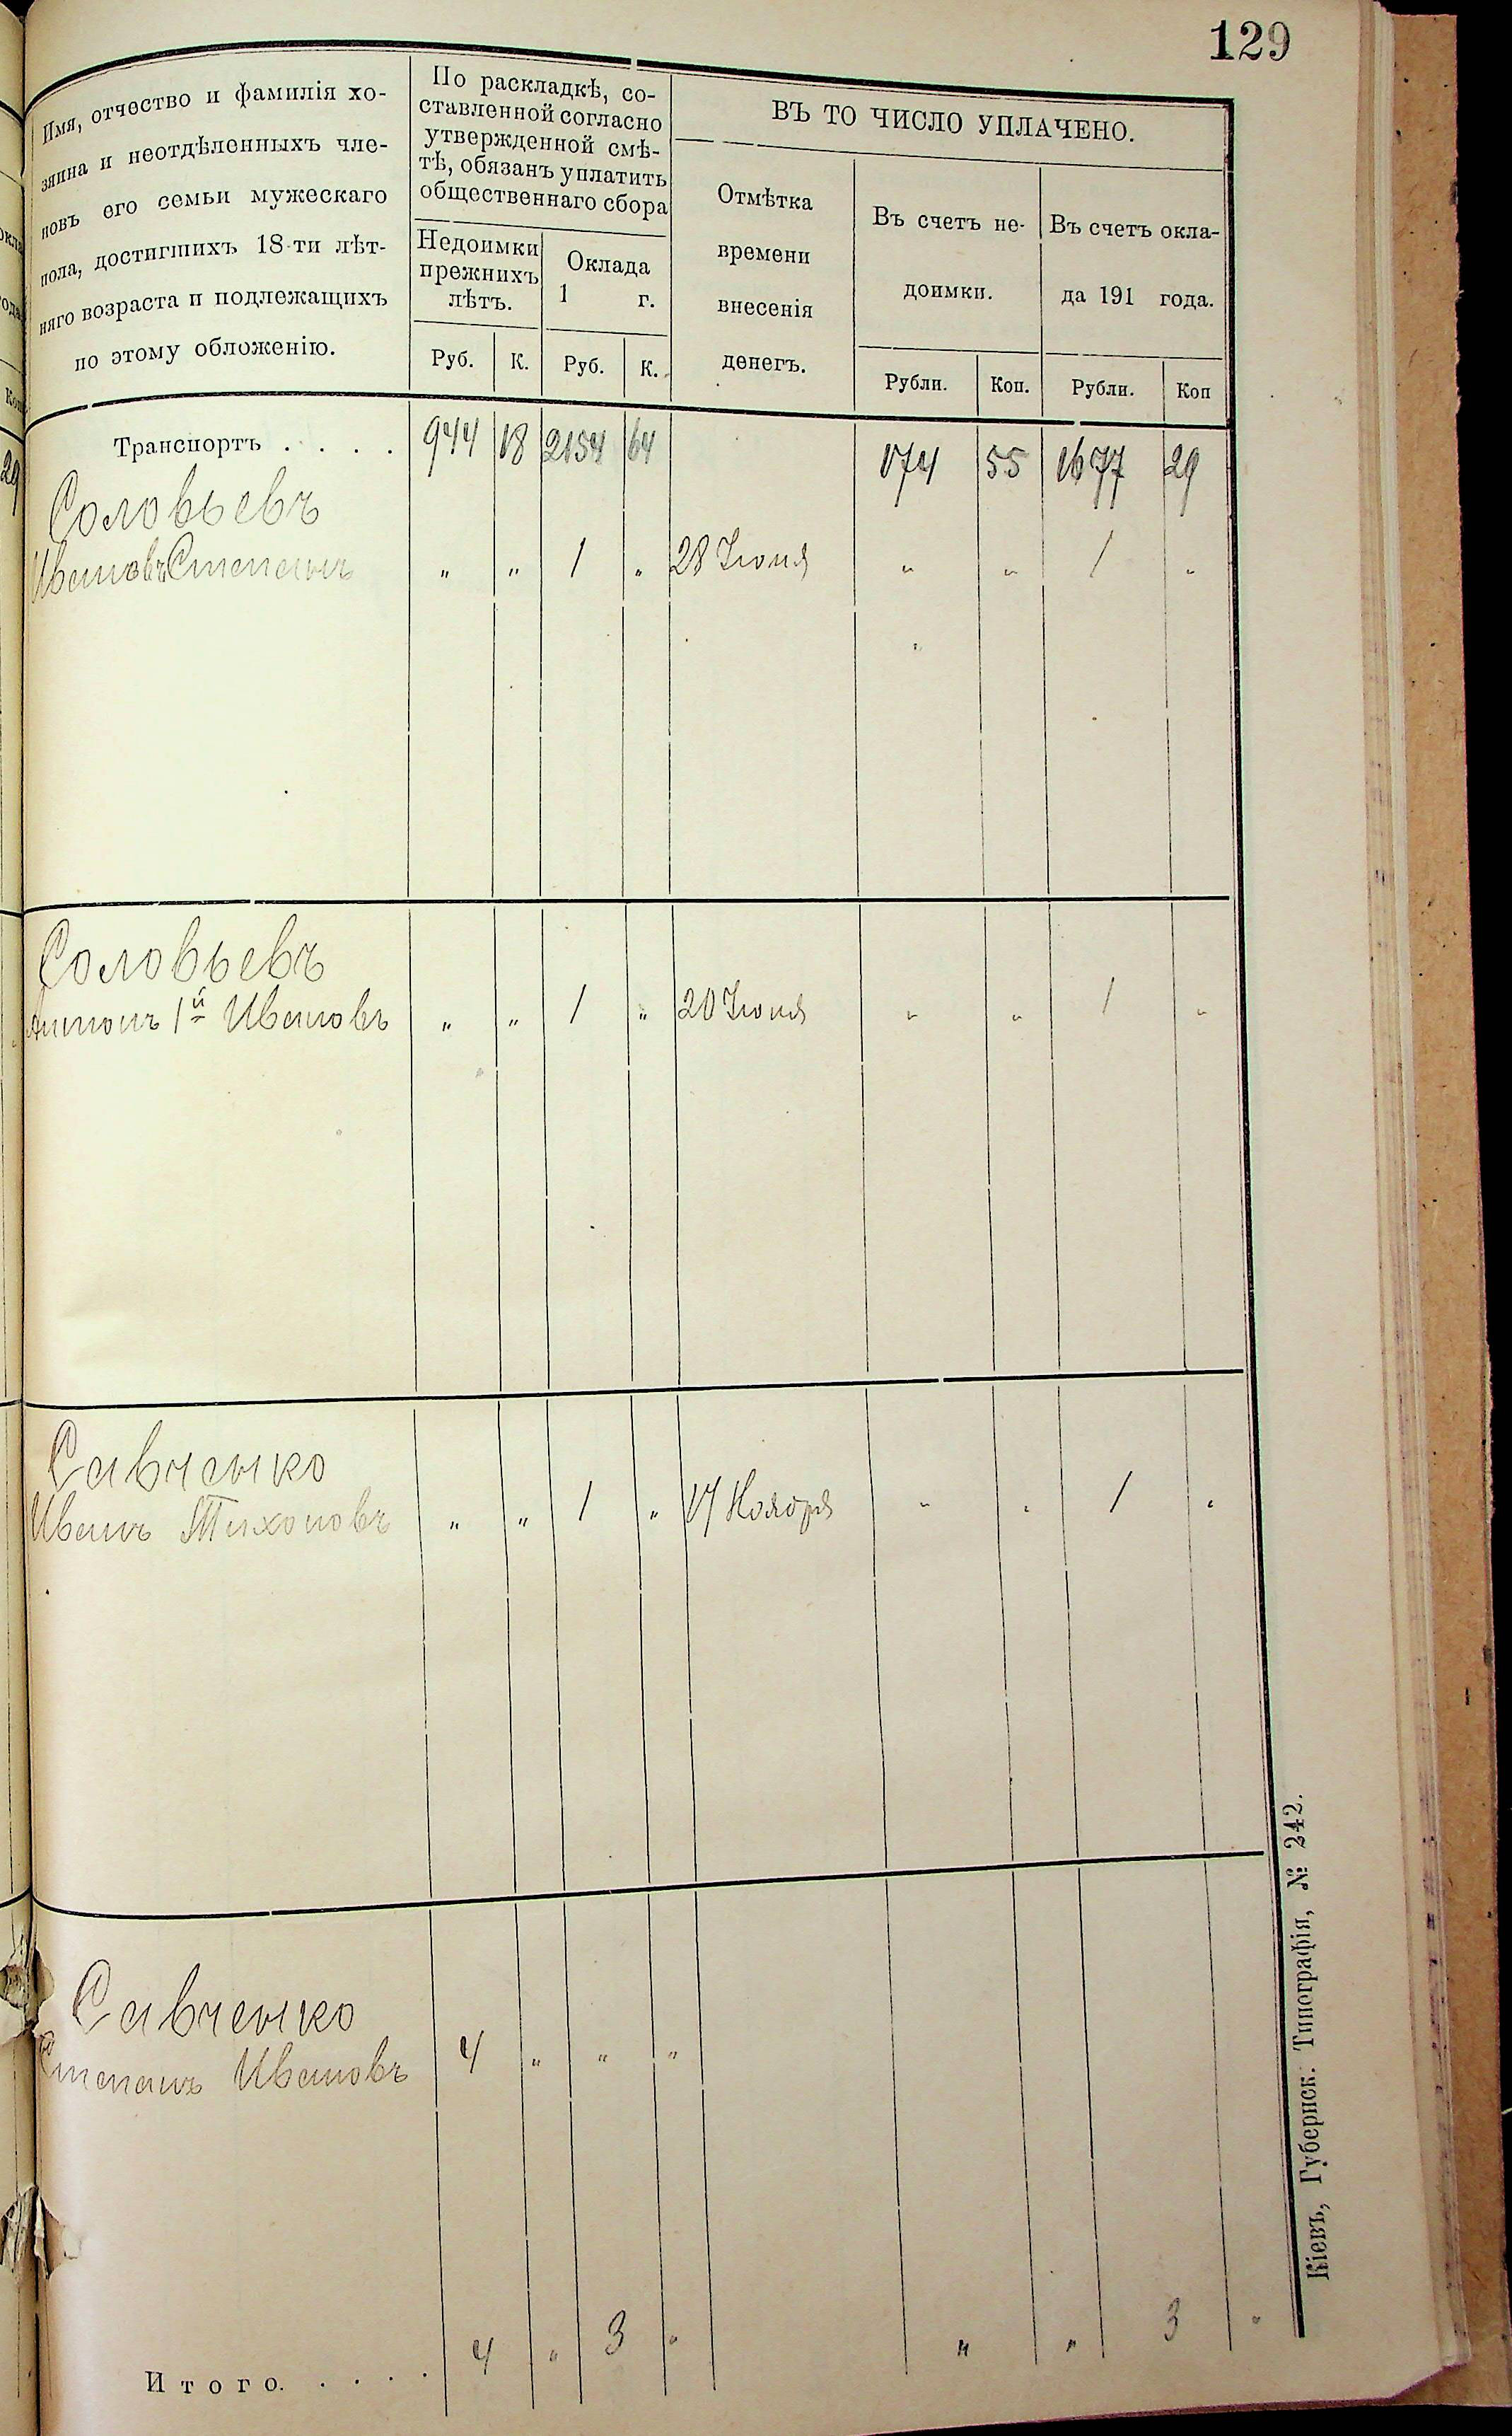 129
Имя, отчество и фамилія хо-
зяина и неотдѣленныхъ чле-
новъ его семьи мужескаго
пола, достигшихъ 18-ти лѣт-
няго возраста и подлежащихъ
по этому обложенію.
По раскладкѣ, со-
ставленной согласно
утвержденной смѣ-
тѣ, обязанъ уплатить
общественнаго сбора
Недоимки
прежнихъ
лѣтъ.
Оклада
1 г.
Руб. К. Руб. К.
ВЪ ТО ЧИСЛО УПЛАЧЕНО.
Отмѣтка
времени
внесенія
денегъ.
Въ счетъ не-
доимки.
Въ счетъ окла-
да 191 года.
Рубли. Коп. Рубли. Коп
Транспортъ . . . . 944 18 2154 64 174 55 1677 29
Соловьевъ
Ивановъ Степанъ „ „ 1 „ 28 Іюня „ „ 1 „
Соловьевъ
Антонъ 1й Ивановъ „ „ 1 „ 20 Іюня „ „ 1 „
Савченко
Иванъ Тихоновъ „ „ 1 „ 17 Ноября „ „ 1 „
Савченко
Степанъ Ивановъ 4 „ „ „
Итого. . . . . 4 „ 3 „ „ „ 3 „
Кіевъ, Губернск. Типографія, № 242.